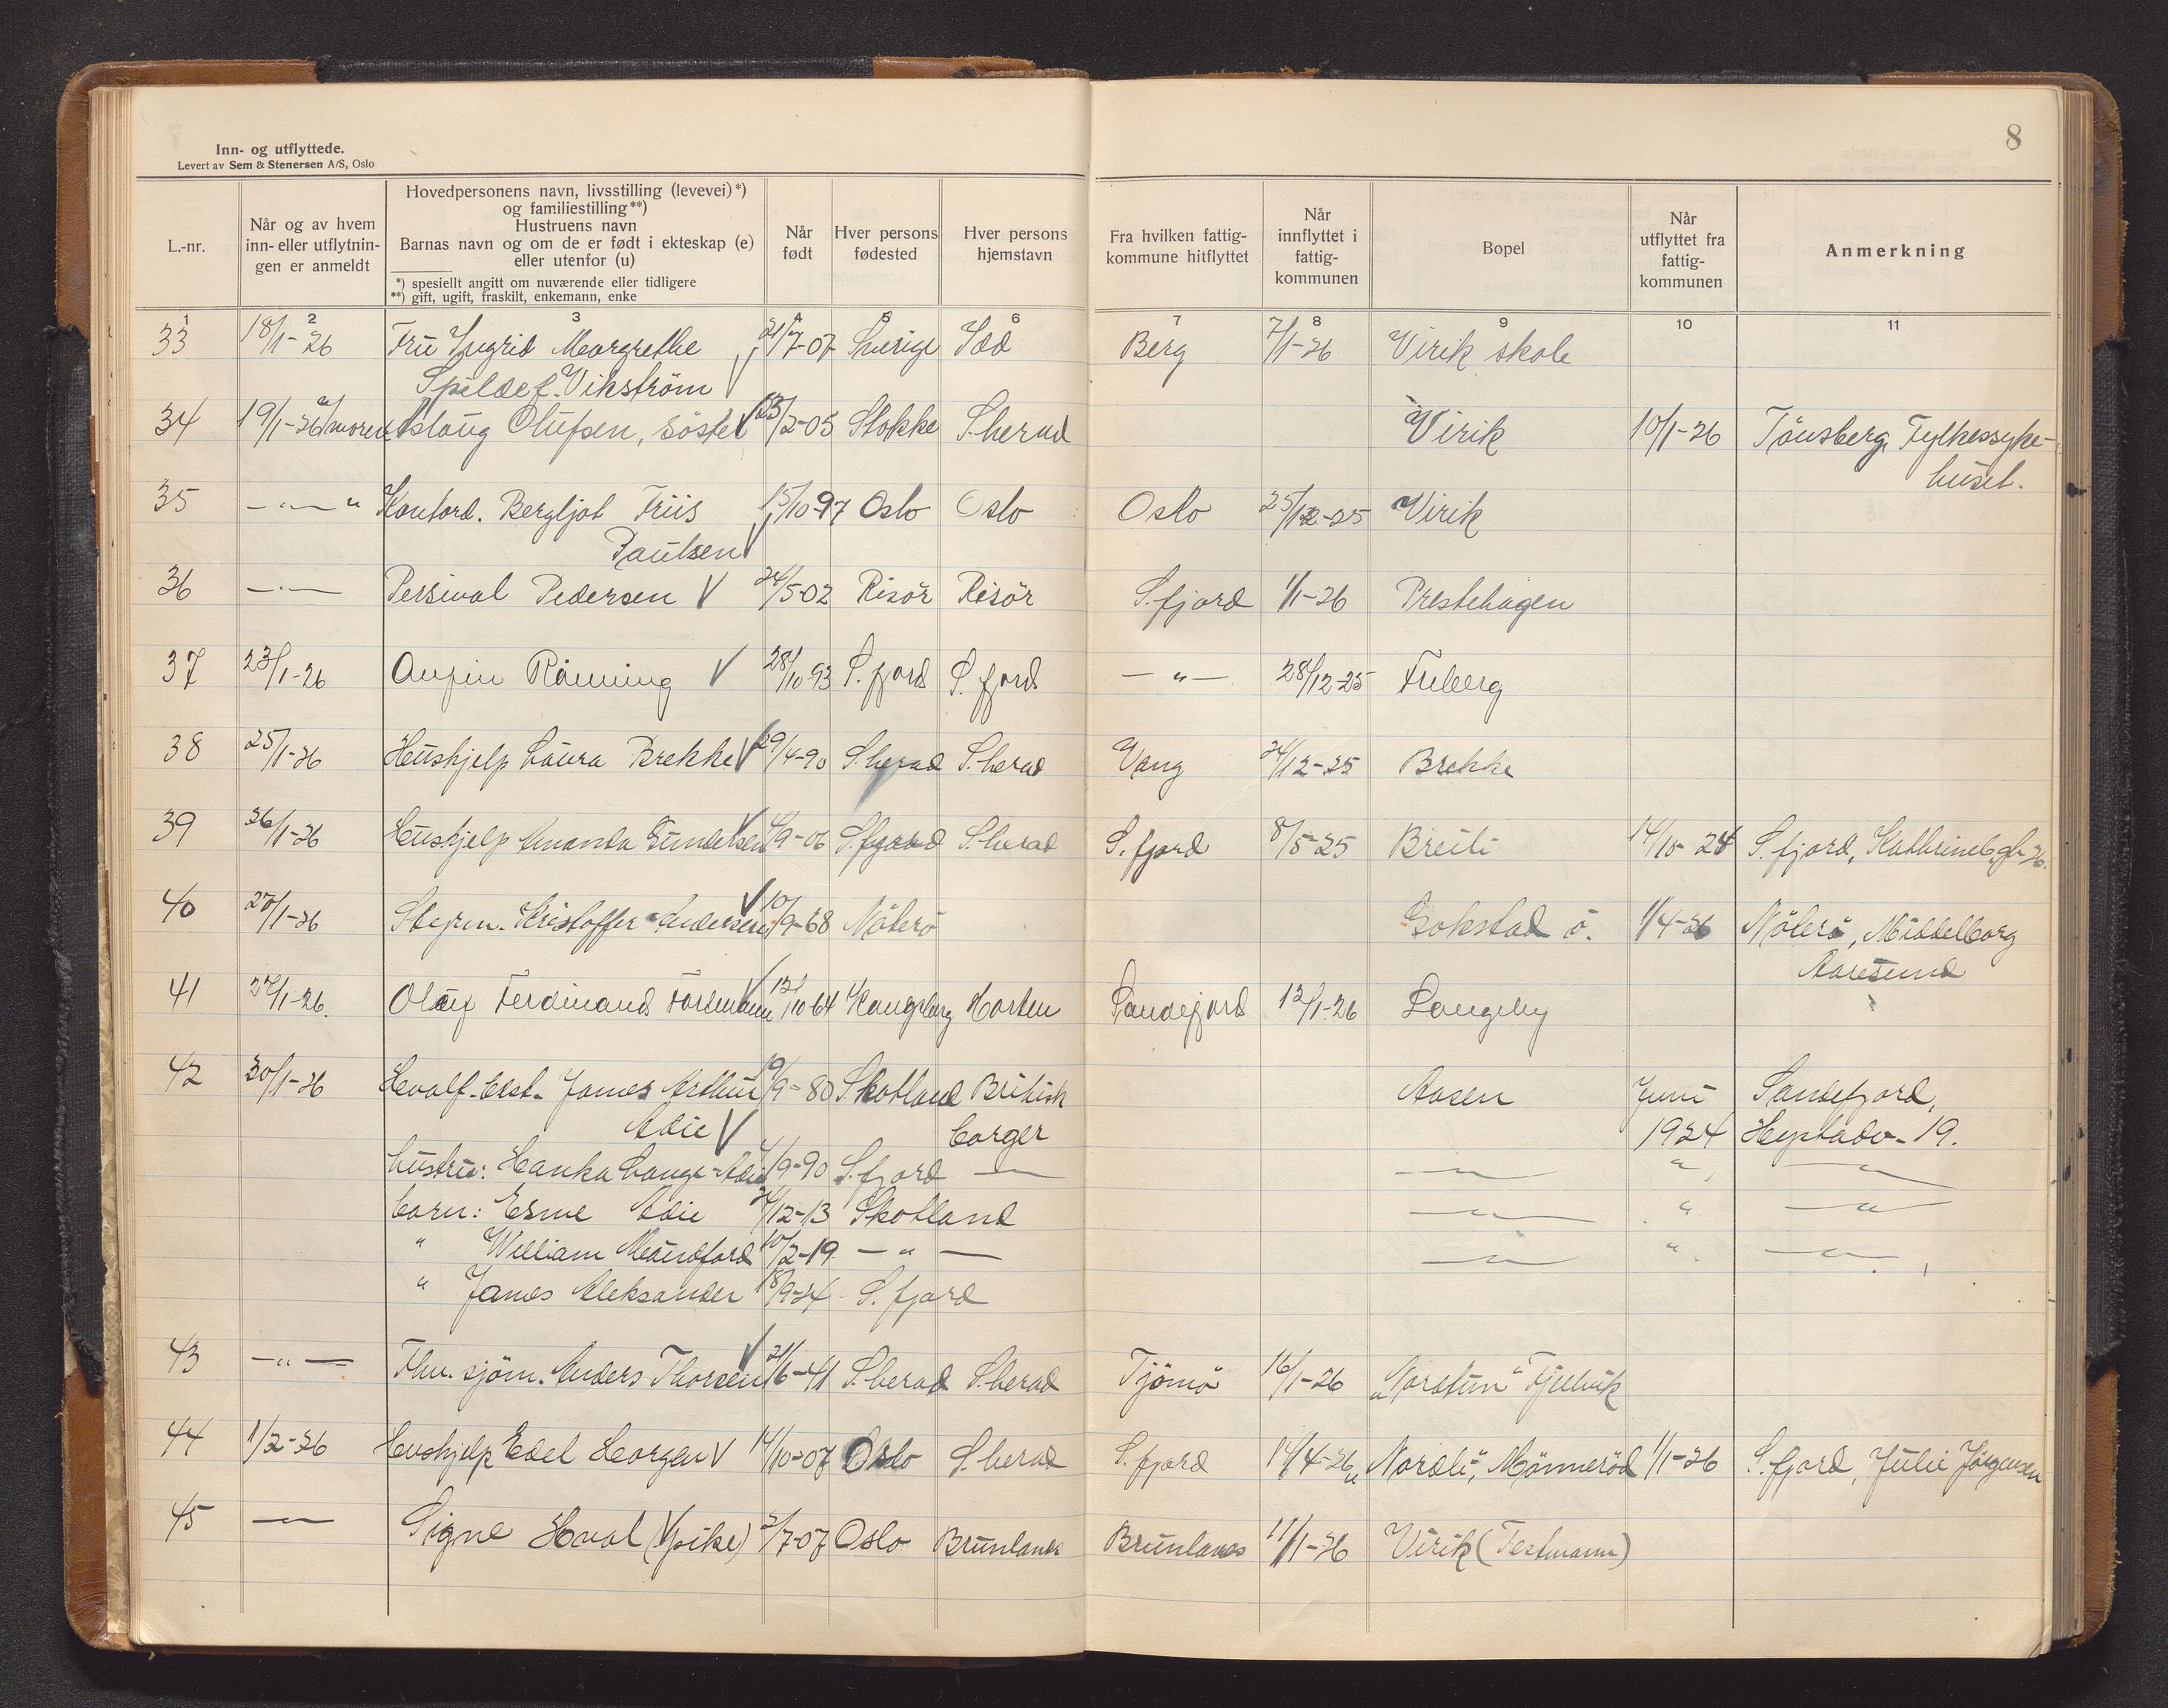 8
Inn- og utflyttede.
Levert av Sem & Stenersen A/S, Oslo
L.-nr.
Når og av hvem
inn- eller utflytnin-
gen er anmeldt
Hovedpersonens navn, livsstilling (levevei)*)
og familiestilling**)
Hustruens navn
Barnas navn og om de er født i ekteskap (e)
eller utenfor (u)
*) spesiellt angitt om nuværende eller tidligere
**) gift, ugift, fraskilt, enkemann, enke
Når
født
Hver persons
fødested
Hver persons
hjemstavn
Fra hvilken fattig-
kommune hitflyttet
Når
innflyttet i
fattig-
kommunen
Bopel
Når
utflyttet fra
fattig-
kommunen
Anmerkning
1 2 3 4 5 6 7 8 9 10 11
33 18/1-26 Fru Ingrid Margrethe 21/7-07 Sverige Berg 7/1-26 Virik skole
f. Vikström
34 19/1-26 moren Aslaug Olufsen, söster 23/2-05 Stokke S.herad Virik 10/1-26 Tönsberg Fylkessyke-
huset.
35 — " — " Kontord. Bergljot Friis 15/10-97 Oslo Oslo Oslo 25/12-25 Virik
Paulsen
36 — " — Persival Pedersen 24/5-02 Risör Risör S.fjord 1/1-26 Prestehagen
37 23/1-26 Rönning 28/10-93 S.fjord S.fjord — " — 28/12-25 Freberg
38 25/1-26 Hushjelp Laura Brekke 29/4-90 S.herad S.herad Vang 24/12-25 Brekke
39 26/1-26 Hushjelp Amanda Gundersen /9-06 S.fjord S.herad S.fjord 8/5-25 Breili 14/10-24 S.fjord,
40 27/1-26 Kristoffer Andersen 10/9-68 Nöterö Gokstad ö. 1/4-26 Nöterö, Middelborg
Aarøsund
41 27/1-26. Olaf Ferdinand 12/10-64 Kongsberg Horten Sandefjord 12/1-26 Langeby
42 30/1-26 Hvalf.best. James Arthur 19/9-80 Skotland Britisk Aasen Juni Sandefjord,
Adie borger 1924 -19.
hustru: Lange-Adie /9-90 S.fjord — " — — " — " — " —
barn: Esme Adie 24/12-13 Skotland — " — " — " —
" William 10/2-19 — " — — " — " — " —
" James Aleksander 18/9-24 S.fjord
43 — " — Fhv. sjöm. Anders Thorsen 21/6-41 S.herad S.herad Tjömö 16/1-26 „Nordtun" Fjellvik
44 1/2-26 Hushjelp Edel Horgen 14/10-07 Oslo S.herad S.fjord 14/4-26 „Nordli", Mönneröd 1/1-26 S.fjord, Julie Jörgensen
45 — " — Signe Hval (pike) 2/7-07 Oslo Brunlanes Brunlanes 11/1-26 Virik (Testmann)